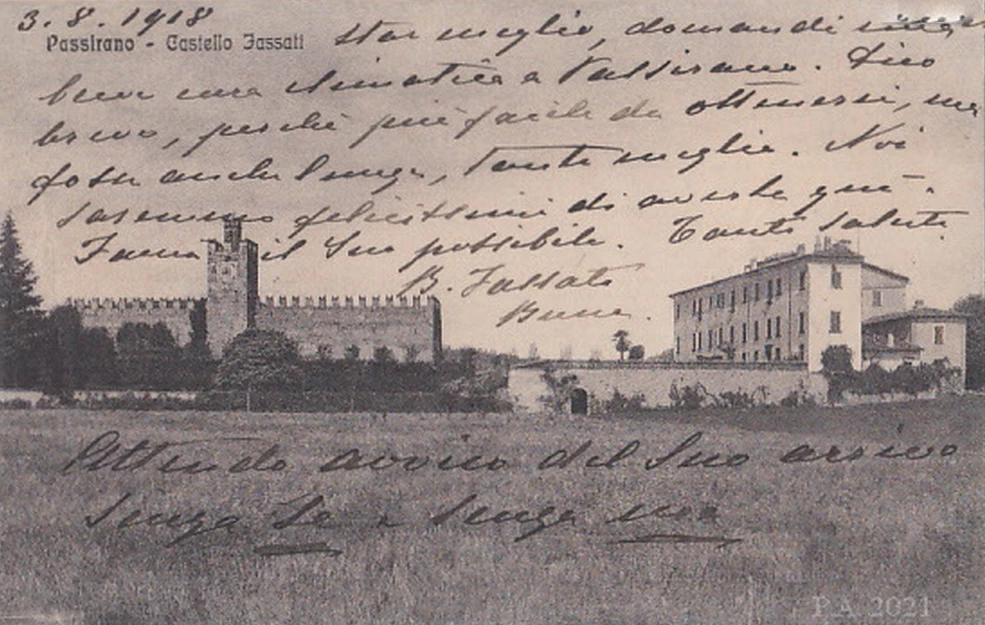 3.8.1918
Passirano - Castello Fassati
star meglio, domandi una
breve cura climatica a Passirano. Dico
breve, perchè più facile da ottenersi, ma
fosse anche lunga, tanto meglio. Noi
saremmo felicissimi di averla qui.
Faccia il Suo possibile. Tanti saluti
B. Fassati
Attendo avviso del Suo arrivo
senza Se e senza ma
P.A. 2021